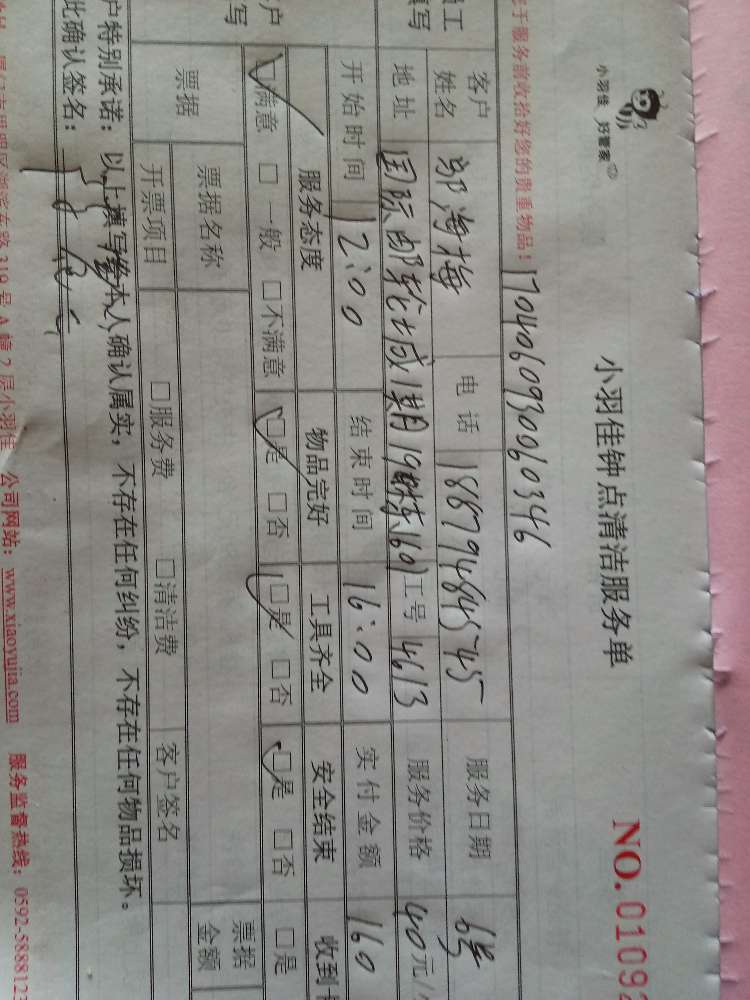 小羽佳 好管家
小羽佳钟点清洁服务单
NO. 01092
于服务前收拾好您的贵重物品！ 1704060930060346
客户姓名 邬海梅 电话 18879484545 服务日期 6号
地址 国际邮轮城1期19栋1601 工号 4613 服务价格 40元/
开始时间 12:00 结束时间 16:00 实付金额 160
服务态度 物品完好 工具齐全 安全结束 收到
☑满意 □一般 □不满意 ☑是 □否 ☑是 □否 ☑是 □否 □是
票据 票据名称 票据金额
开票项目 □服务费 □清洁费 客户签名
户特别承诺：以上填写经本人确认属实，不存在任何纠纷，不存在任何物品损坏。
此确认签名：
319号A幢2层小羽佳 公司网站：www.xiaoyujia.com 服务监督热线：0592-5888123